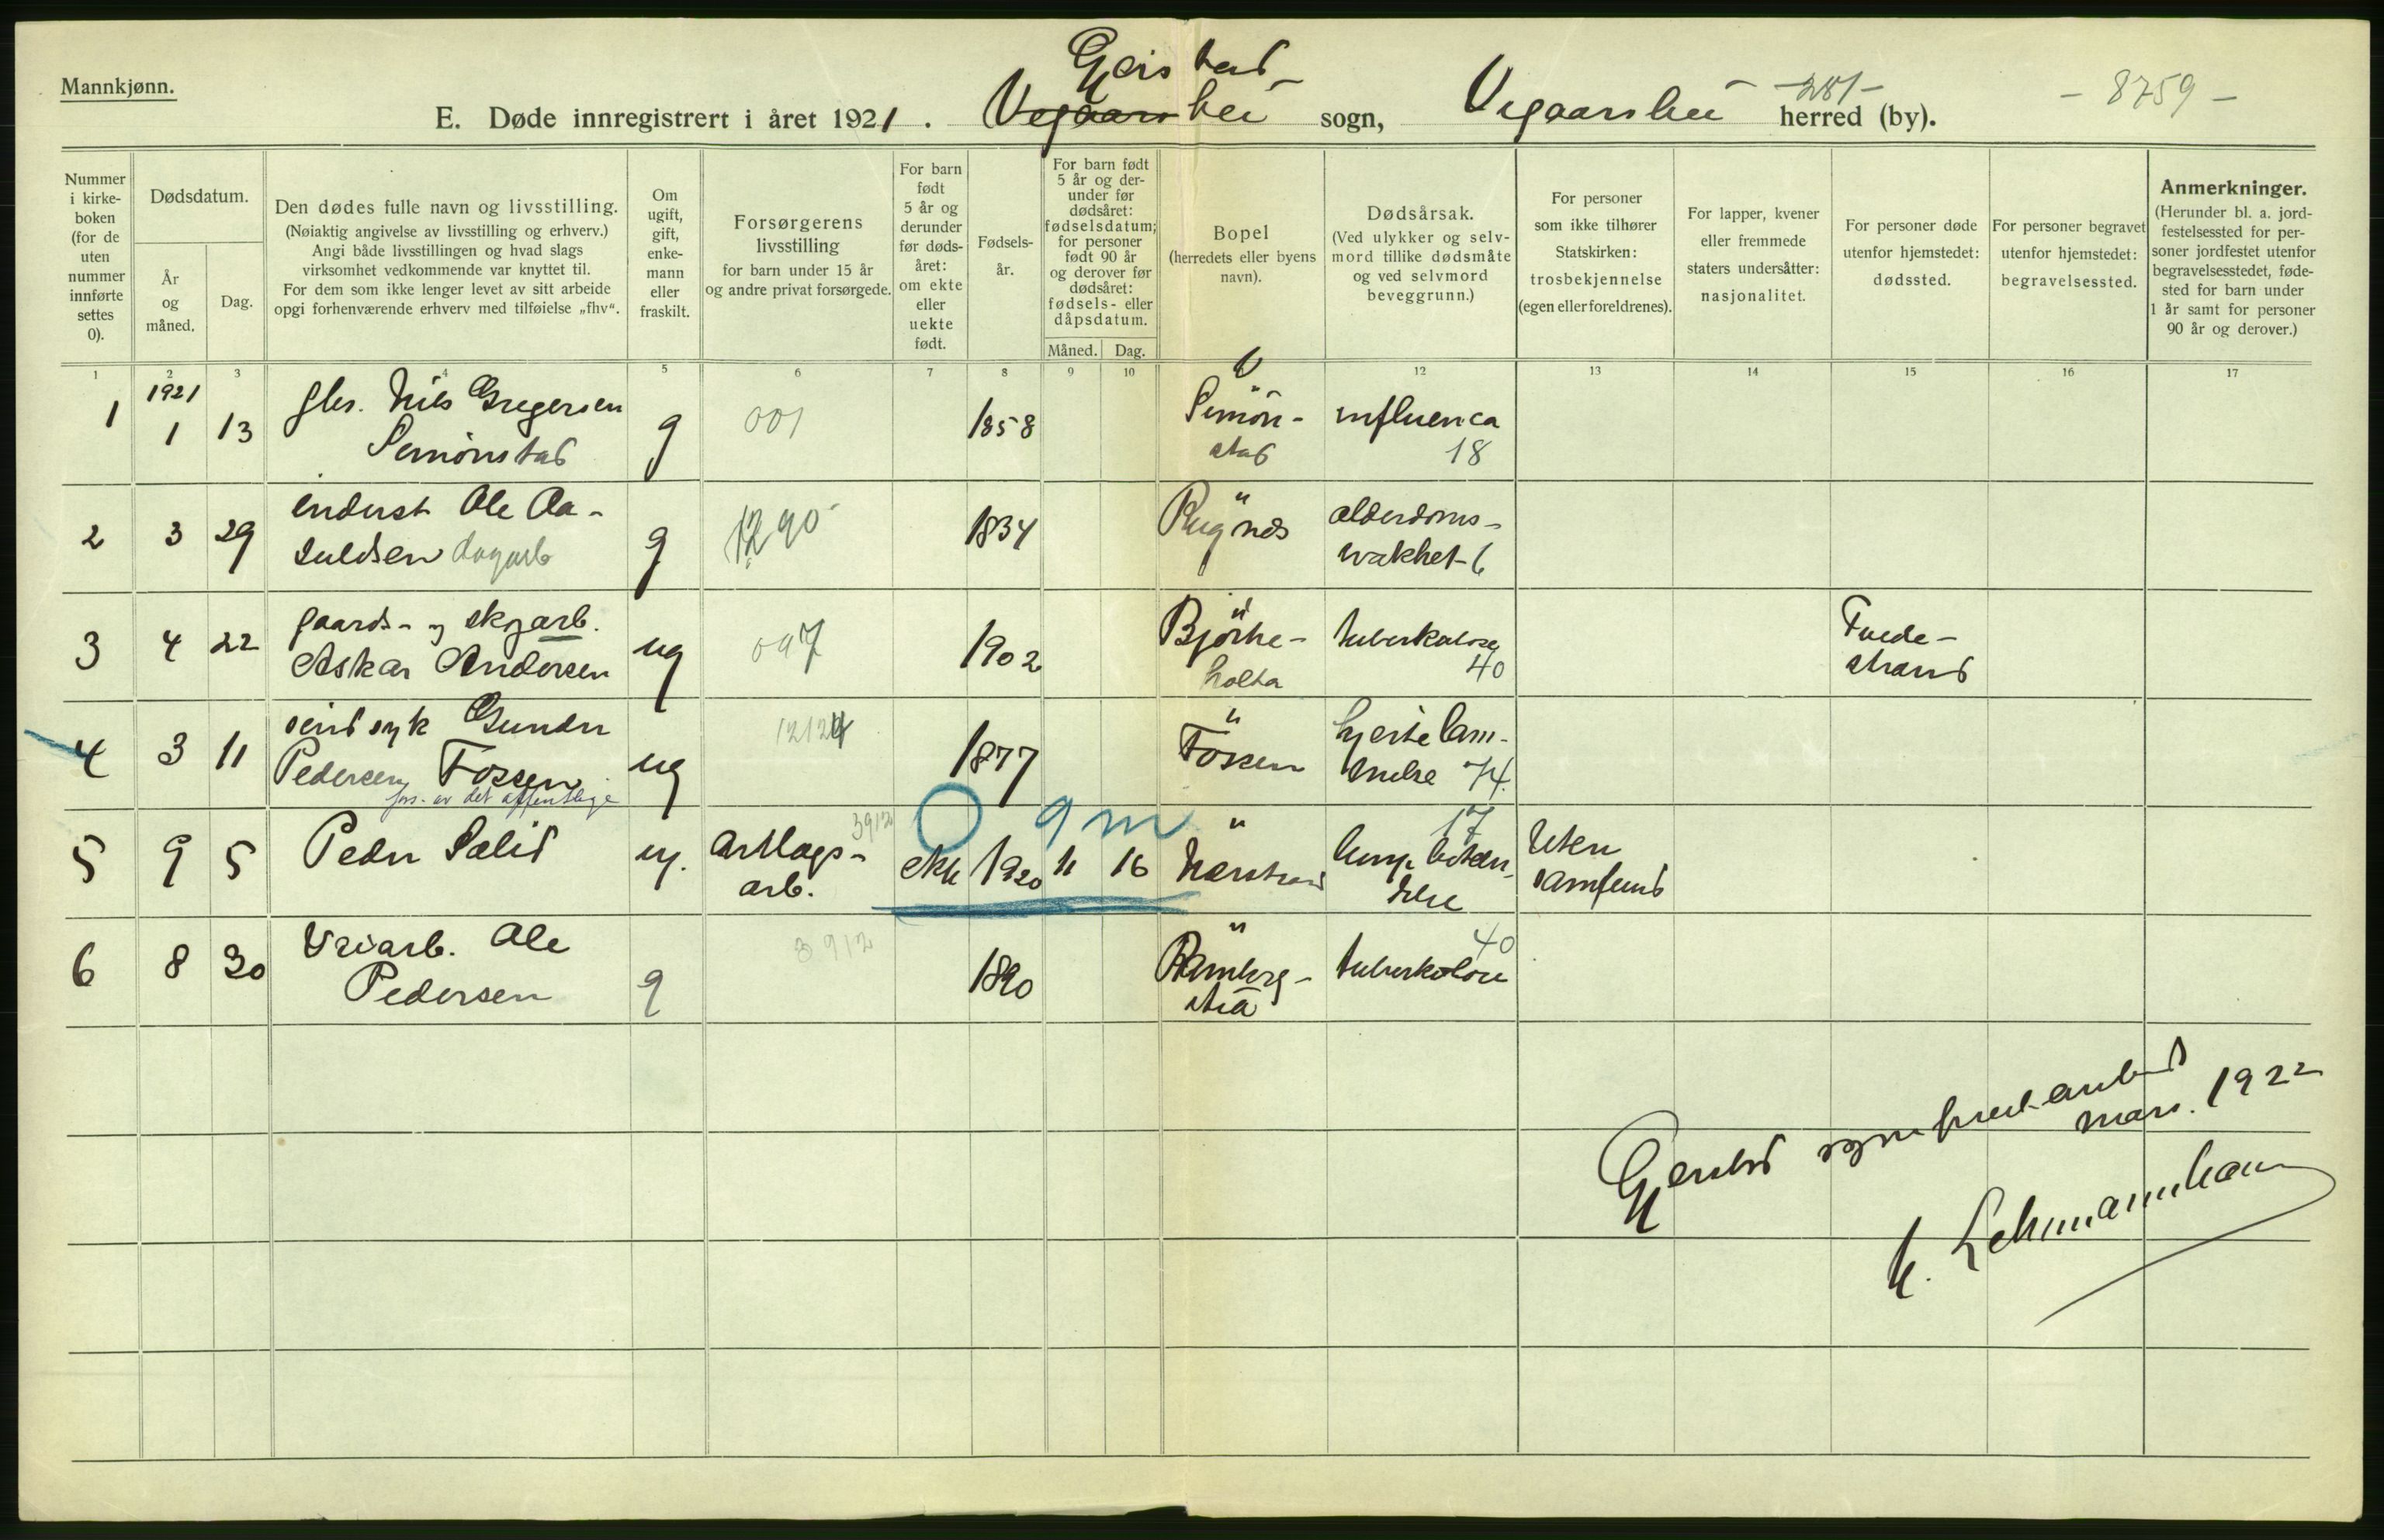 Mannkjønn.
Gjerstad
E. Døde innregistrert i året 1921. Vegaarshei sogn, Vegaarshei herred (by).
-281-
- 8759 -
Nummer i kirkeboken (for de uten nummer innførte settes 0).
Dødsdatum.
År og måned.
Dag.
Den dødes fulle navn og livsstilling.
(Nøiaktig angivelse av livsstilling og erhverv.)
Angi både livsstillingen og hvad slags
virksomhet vedkommende var knyttet til.
For dem som ikke lenger levet av sitt arbeide
opgi forhenværende erhverv med tilføielse „fhv“.
Om ugift, gift, enkemann eller fraskilt.
Forsørgerens
livsstilling
for barn under 15 år
og andre privat forsørgede.
For barn født 5 år og derunder før dødsåret: om ekte eller uekte født.
Fødselsår.
For barn født 5 år og derunder før dødsåret: fødselsdatum; for personer født 90 år og derover før dødsåret: fødsels- eller dåpsdatum.
Måned.
Dag.
Bopel
(herredets eller byens navn).
Dødsårsak.
(Ved ulykker og selvmord tillike dødsmåte og ved selvmord beveggrunn.)
For personer som ikke tilhører Statskirken: trosbekjennelse (egen eller foreldrenes).
For lapper, kvener eller fremmede staters undersåtter: nasjonalitet.
For personer døde utenfor hjemstedet: dødssted.
For personer begravet utenfor hjemstedet: begravelsessted.
Anmerkninger.
(Herunder bl. a. jordfestelsessted for personer jordfestet utenfor begravelsesstedet, fødested for barn under 1 år samt for personer 90 år og derover.)
1 2 3 4 5 6 7 8 9 10 12 13 14 15 16 17
1 1921 1 13 gbr. Nils Gregersen Simonstad g 001 1858 " Simonstad influenca 18
2 3 29 inderst Ole Aasuldsen dagarb g 1290 1834 " Rugnes alderdomssvakhet 6
3 4 22 gaards- og skogarb. Askar Andersen ug 097 1902 " Bjørkeholta tuberkulose 40 Tvedestrand
4 3 11 sindsyk Gunder Pedersen Fossen fors. av det offentlige ug 12124 1877 " Fossen hjertelammelse 74.
5 9 5 Peder Salid ug. anlægsarb. 3912 ekte 1920 11 16 " 17 Uten samfund
0 9 m
6 8 30 Veiarb. Ole Pedersen g 3912 1890 " tuberkolose 40
Gjerstad sogneprestembed
mars. 1922